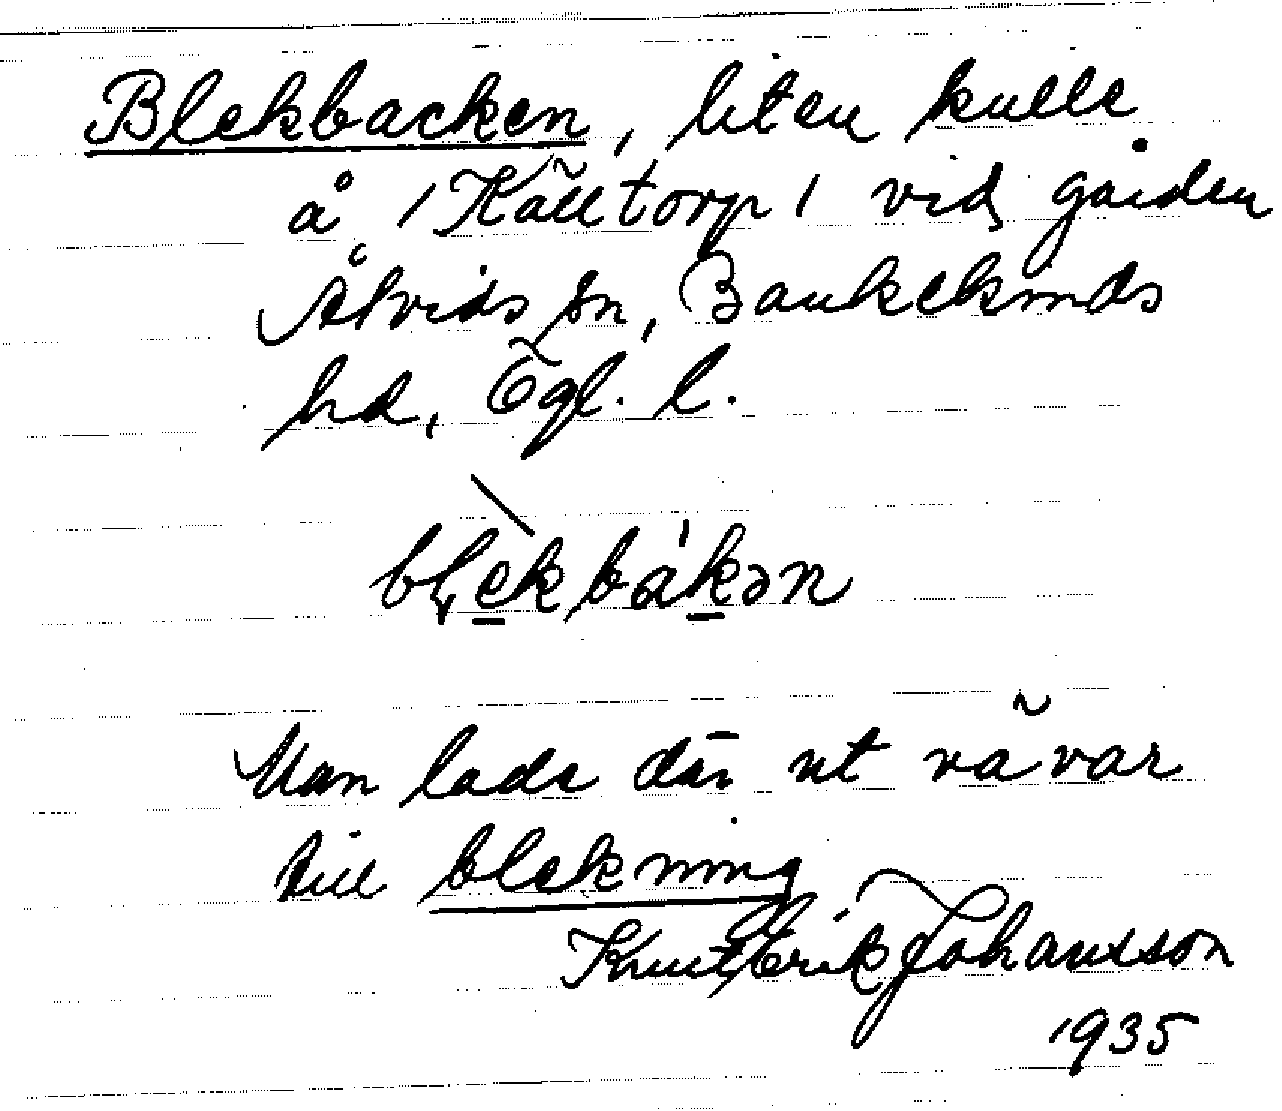 Blekbacken, liten kulle
å /Källtorp/ vid gården
Åtvids sn, Bankekinds
hd, Ögl. l.
blèkbákən
Man lade där ut vävar
till blekning
Knut Erik Johansson
1935